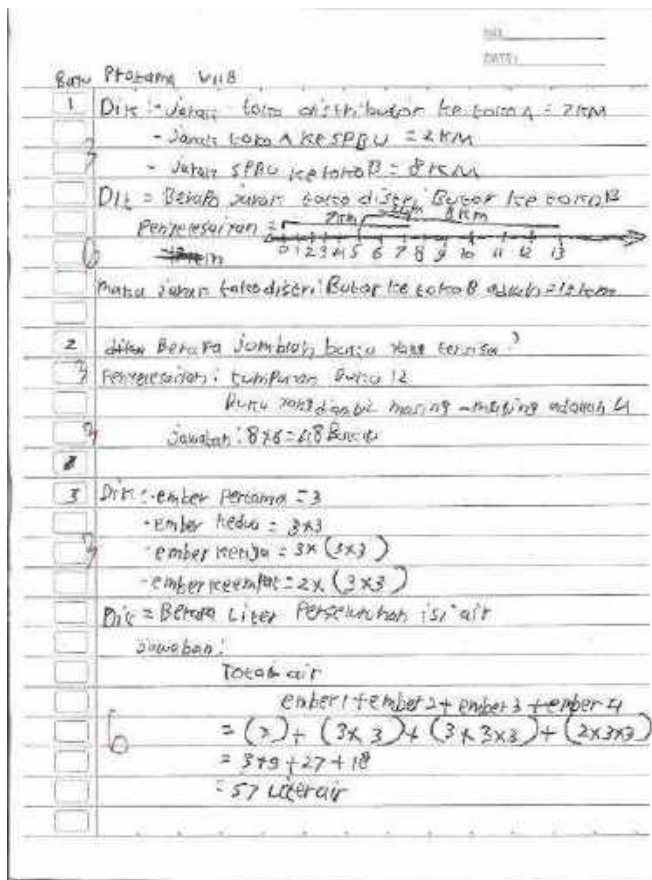 NO:
DATE:
Bayu Pratama VIIB
1 Dik :- Jarak toko distributor ke toko A = 7KM
- Jarak toko A ke SPBU = 2KM
- Jarak SPBU ke toko B = 8KM
Dit = Berapa jarak toko distributor ke toko B
7km 8km
Penyelesaian =
0 1 2 3 4 5 6 7 8 9 10 11 12 13
6
Maka jarak toko distributor ke toko B adalah
2 Berapa jumblah buku yang tersisa?
3 Penyelesaian : tumpukan buku 12
Buku yang diambil masing-masing adalah 4
Jawaban : 8x6=48 Buku
3 Dik :- ember Pertama = 3
- ember kedua = 3x3
3 - ember ketiga = 3x (3x3)
- ember keempat = 2x (3x3)
Dit = Berapa Liter Perseluruhan isi air
Jawaban :
Total air
ember 1 + ember 2 + ember 3 + ember 4
6 = (3) + (3x3) + (3x3x3) + (2x3x3)
= 3+9+27+18
= 57 Liter air